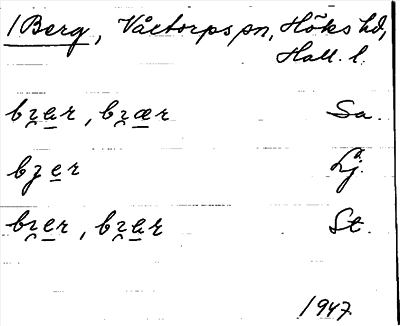 1 Berg, Våxtorps sn, Höks hd,
Hall. l.
bʒær, bʒær Sa.
bʒer Lj.
bʒer, bʒær St.
1947